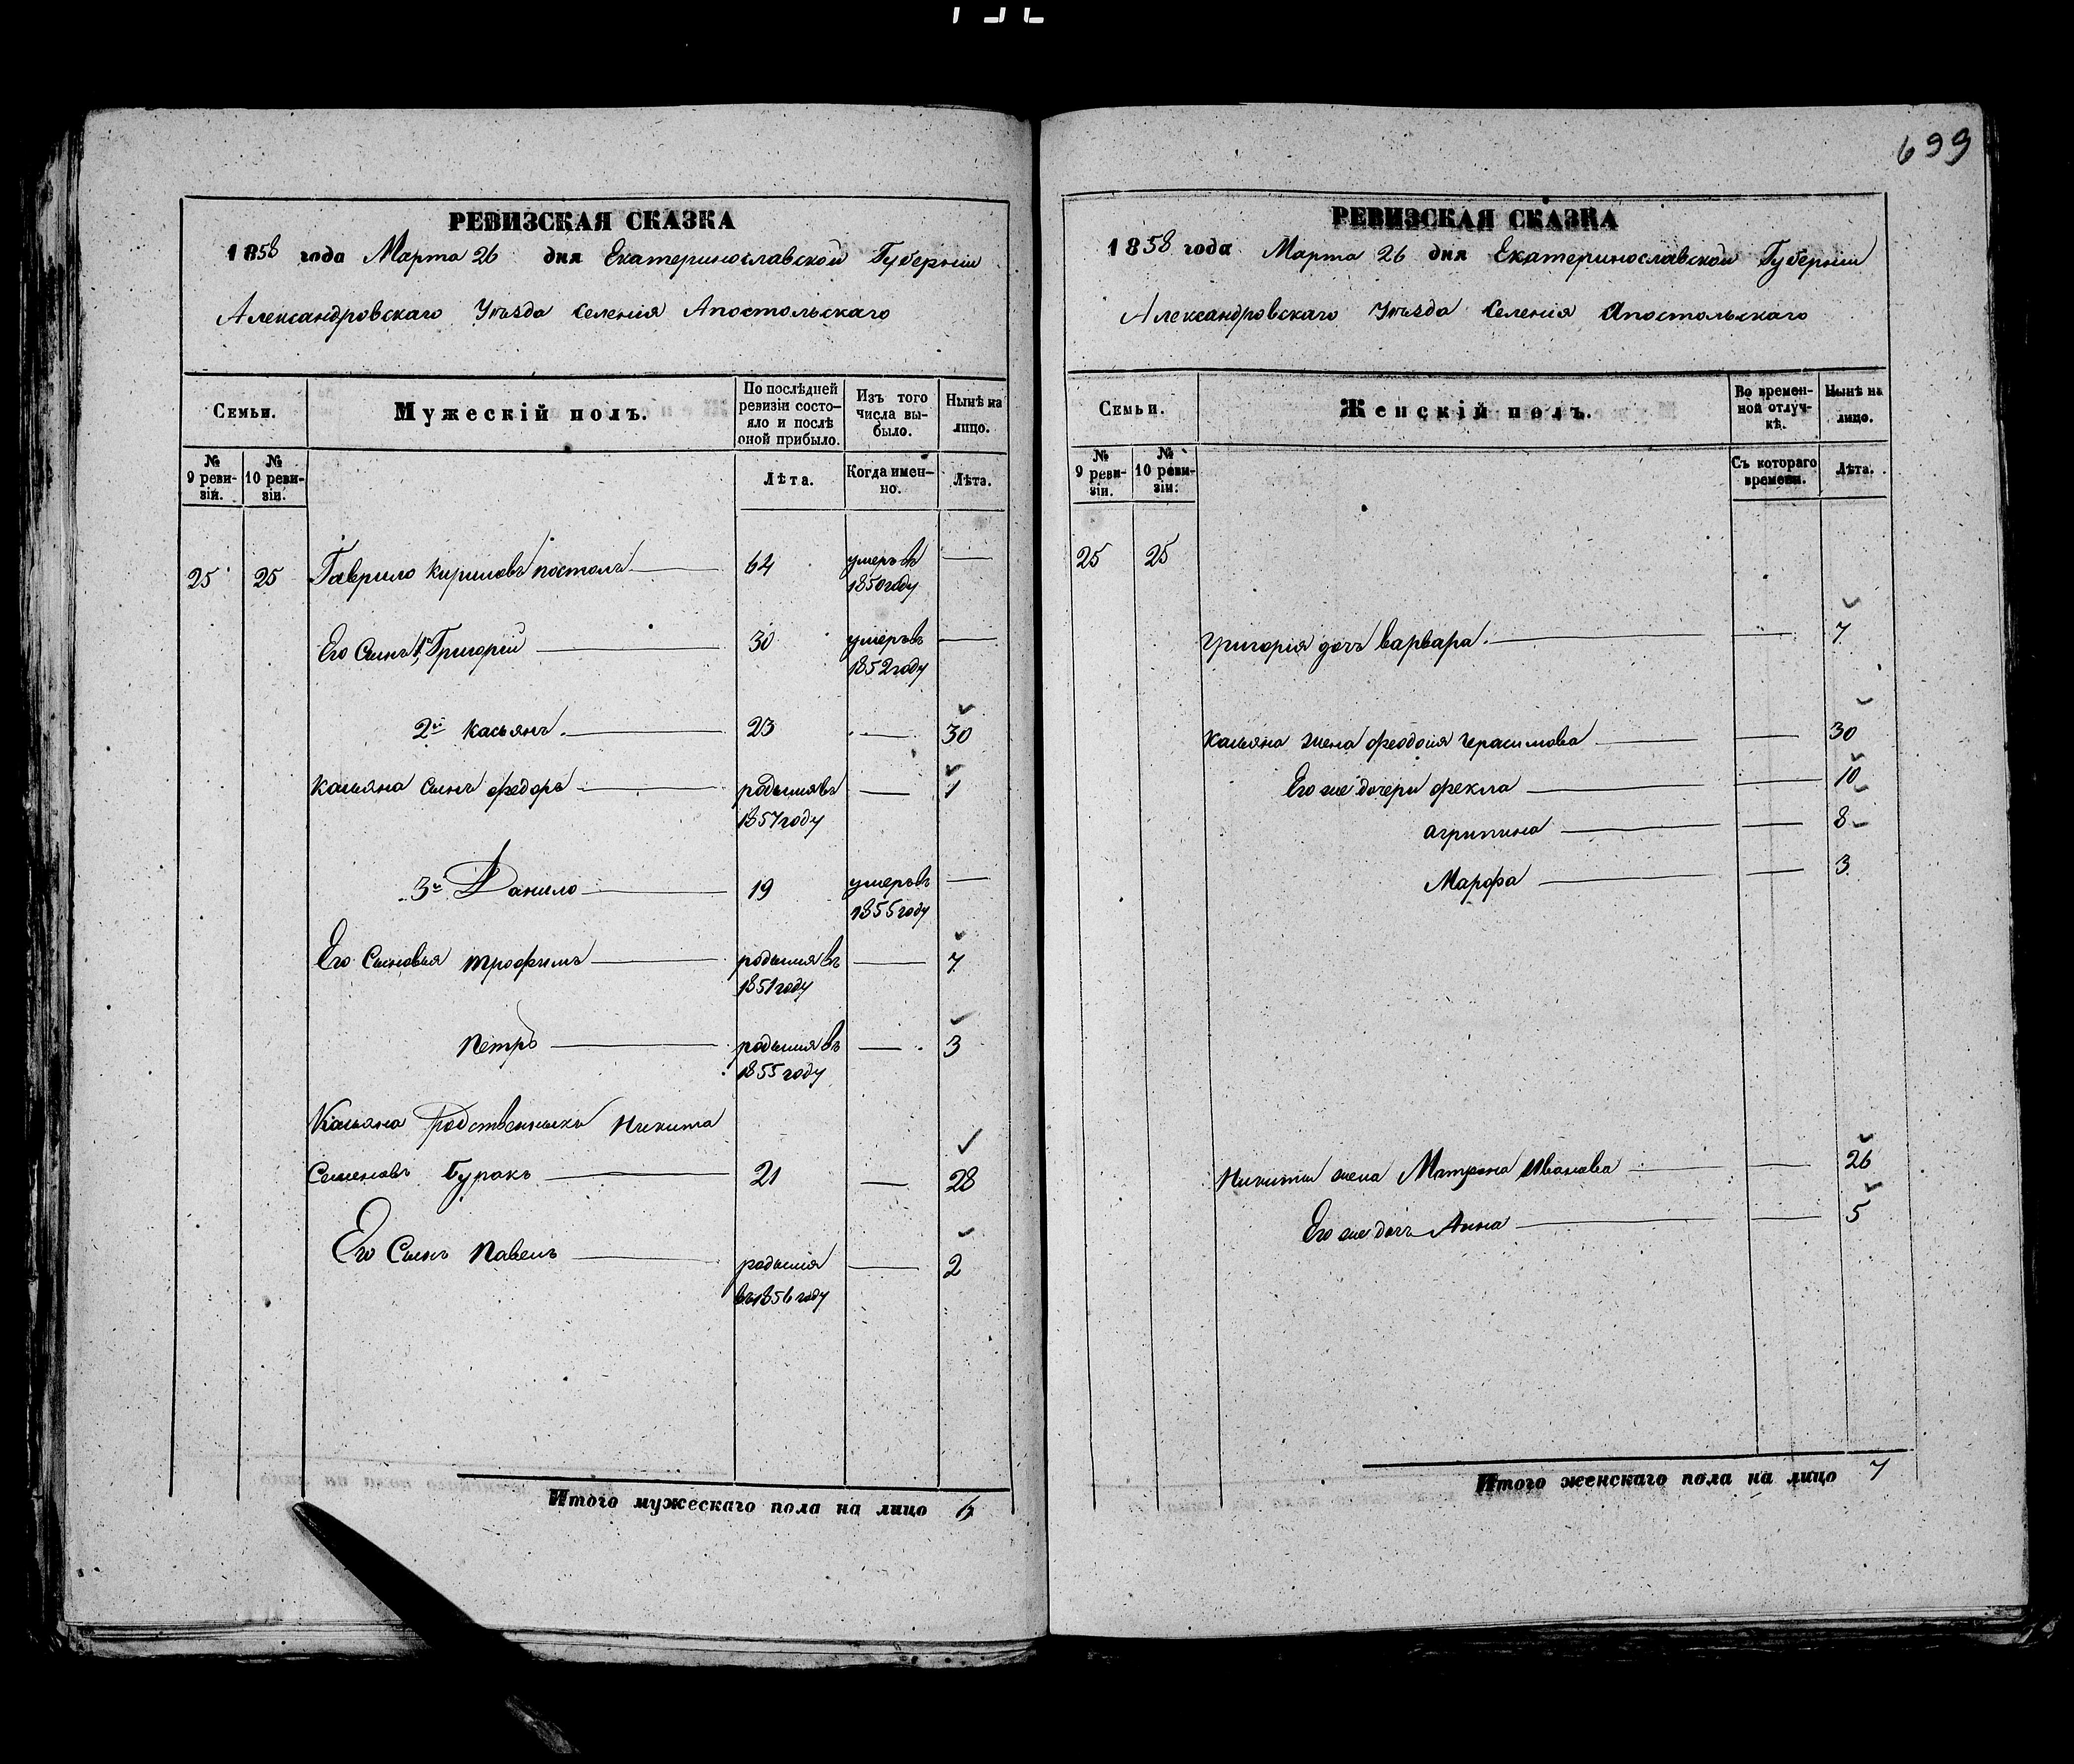 699
РЕВИЗСКАЯ СКАЗКА
1858 года Марта 26 дня Екатеринославской Губерніи
Александровскаго Уѣзда Селенія Апостольскаго
Семьи.
Мужескій полъ.
По послѣдней
ревизіи состо-
яло и послѣ
оной прибыло.
Изъ того
числа вы-
было.
Нынѣ на
лицо.
№
9 реви-
зіи.
№
10 реви-
зіи.
Лѣта.
Когда имен-
но.
Лѣта.
25 25 Гаврило Кириловъ Постолъ 64 умеръ въ
1850 году
Его Сынъ 1й Григорій 30 умеръ въ
1852 году
2й Касьянъ 23 30
Касьяна Сынъ Федоръ родился въ 1
1857 году
3й Данило 19 умеръ въ
1855 году
Его Сыновья Трофимъ родился въ 7
1851 году
Петръ родился въ 3
1855 году
Касьяна Родственникъ Никита
Семеновъ Буракъ 21 28
Его Сынъ Павелъ родился 2
въ 1856 году
Итого мужескаго пола на лицо 6
РЕВИЗСКАЯ СКАЗКА
1858 года Марта 26 дня Екатеринославской Губерніи
Александровскаго Уѣзда Селенія Апостольскаго
Семьи.
Женскій полъ.
Во времен-
ной отлуч-
кѣ.
Нынѣ на
лицо.
№
9 реви-
зіи.
№
10 реви-
зіи.
Съ котораго
времени.
Лѣта.
25 25
Григорія дочь Варвара 7
Касьяна жена Феодосія Герасимова 30
Его же дочери Фекла 10
Агрипина 8
Марфа 3
Никиты жена Матрона Иванова 26
Его же дочь Анна 5
Итого женскаго пола на лицо 7